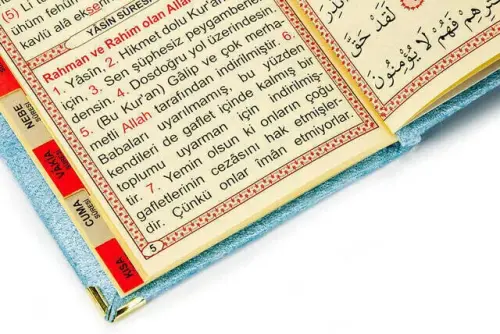 (5) Li
ühüm fehüm
kavlü alâ
YÂSİN SÛRESİ
Rahman ve Rahim olan Allah
1. Yâsin. 2. Hikmet dolu Kur'an
için, 3. Sen şüphesiz peygamberler-
densin. 4. Dosdoğru yol üzerindesin.
5. (Bu Kur'an) Gâlip ve çok merha-
metli Allah tarafından indirilmiştir. 6.
Babaları uyarılmamış, bu yüzden
kendileri de gaflet içinde kalmış bir
toplumu uyarman için indirilmiş-
tir. 7. Yemin olsun ki onların çoğu
gafletlerinin cezâsını hak etmişler-
dir. Çünkü onlar îmân etmiyorlar.
5
NEBE
SÛRESİ
VAKIA
SÛRESİ
CUMA
SÛRESİ
KISA
لَقَدْ حَقَّ
فَهُمْ لَا يُؤْمِنُونَ